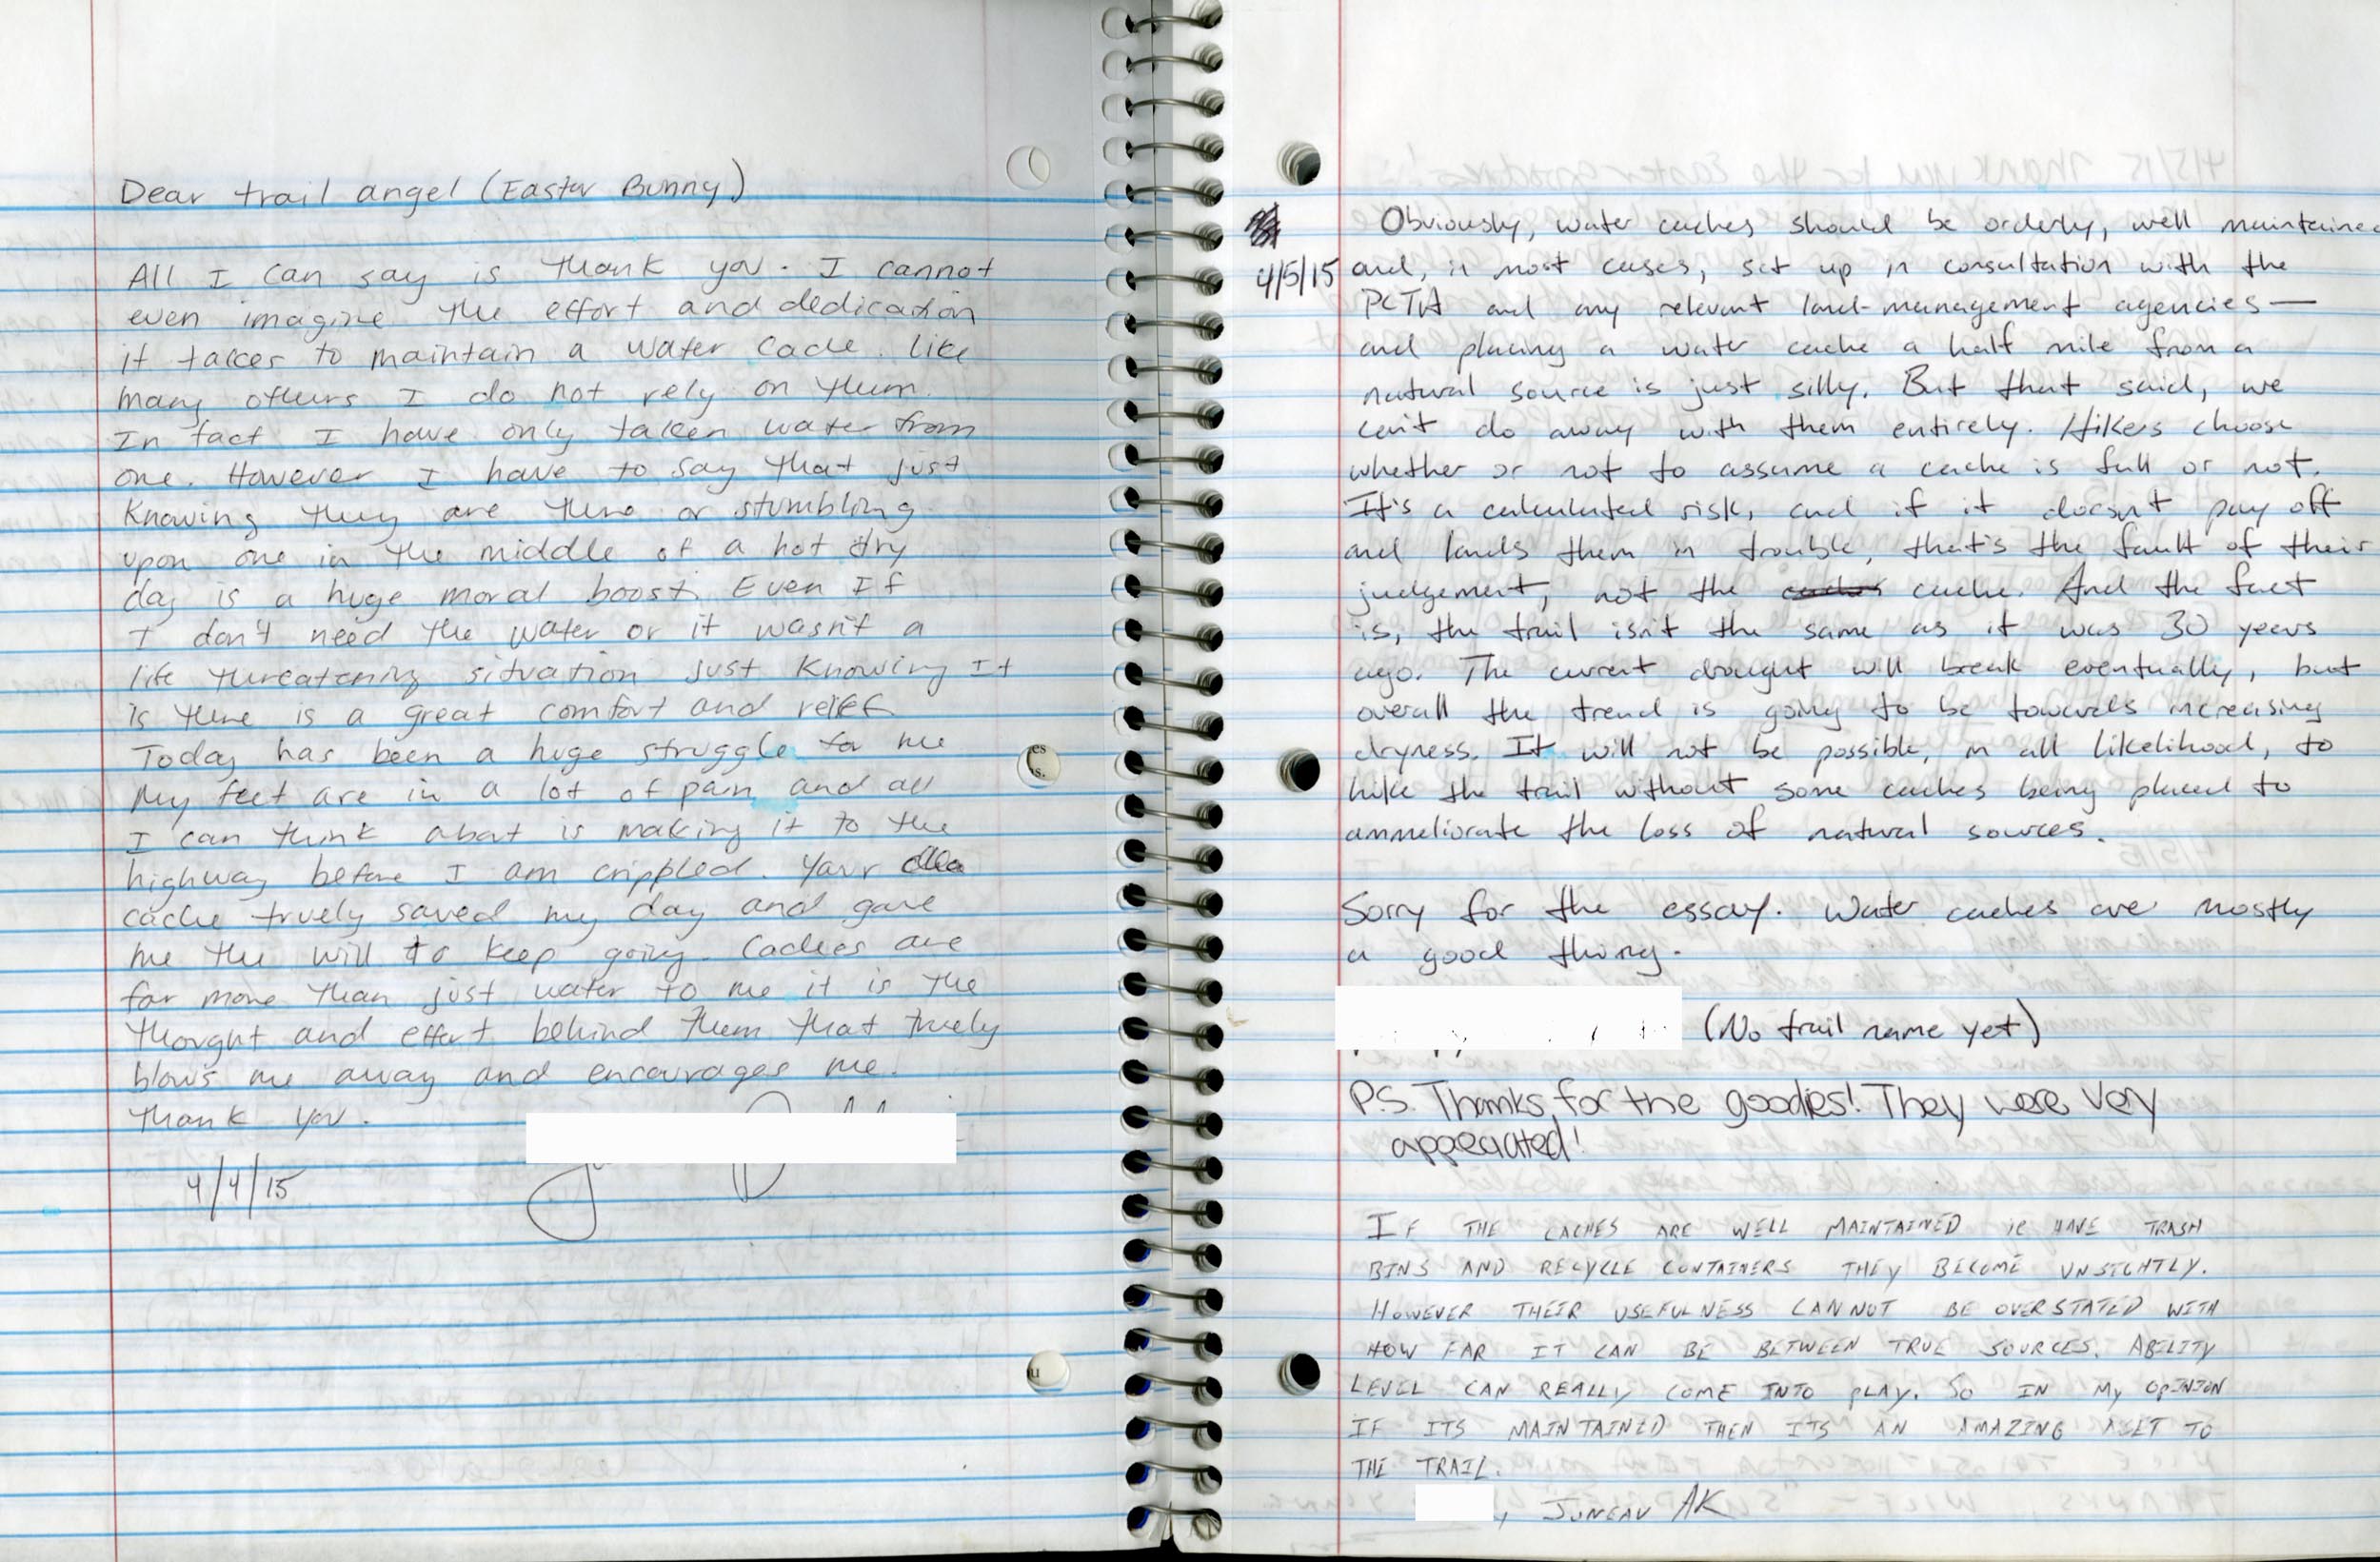 Dear trail angel (Easter Bunny)
All I can say is thank you. I cannot
even imagine the effort and dedication
it takes to maintain a water cache. Like
many others I do not rely on them.
In fact I have only taken water from
one. However I have to say that just
knowing they are there or stumbling
upon one in the middle of a hot dry
day is a huge moral boost. Even If
I don't need the water or it wasn't a
life threatening situation just knowing It
is there is a great comfort and relief
Today has been a huge struggle for me
My feet are in a lot of pain and all
I can think about is making it to the
highway before I am crippled. Your
cache truely saved my day and gave
me the will to keep going. Caches are
far more than just water to me it is the
thought and effort behind them that truely
blows me away and encourages me.
Thank you.
4/4/15
Obviously, water caches should be orderly, well maintained
4/5/15 and, in most cases, set up in consultation with the
PCTA and any relevant land-management agencies—
and placing a water cache a half mile from a
natural source is just silly. But that said, we
can't do away with them entirely. Hikers choose
whether or not to assume a cache is full or not.
It's a calculated risk, and if it doesn't pay off
and lands them in trouble, that's the fault of their
judgement, not the caches cache. And the fact
is, the trail isn't the same as it was 30 years
ago. The current drought will break eventually, but
overall the trend is going to be towards increasing
dryness. It will not be possible, in all likelihood, to
hike the trail without some caches being placed to
ammeliorate the loss of natural sources.
Sorry for the essay. Water caches are mostly
a good thing.
(No trail name yet)
P.S. Thanks for the goodies! They were very
appreciated!
IF THE CACHES ARE WELL MAINTAINED HAVE TRASH
BINS AND RECYCLE CONTAINERS THEY BECOME UNSIGHTLY.
HOWEVER THEIR USEFULNESS CANNOT BE OVERSTATED WITH
HOW FAR IT CAN BE BETWEEN TRUE SOURCES. ABILITY
LEVEL CAN REALLY COME INTO PLAY. SO IN MY OPINION
IF ITS MAINTAINED THEN ITS AN AMAZING ASET TO
THE TRAIL.
, JUNEAU AK